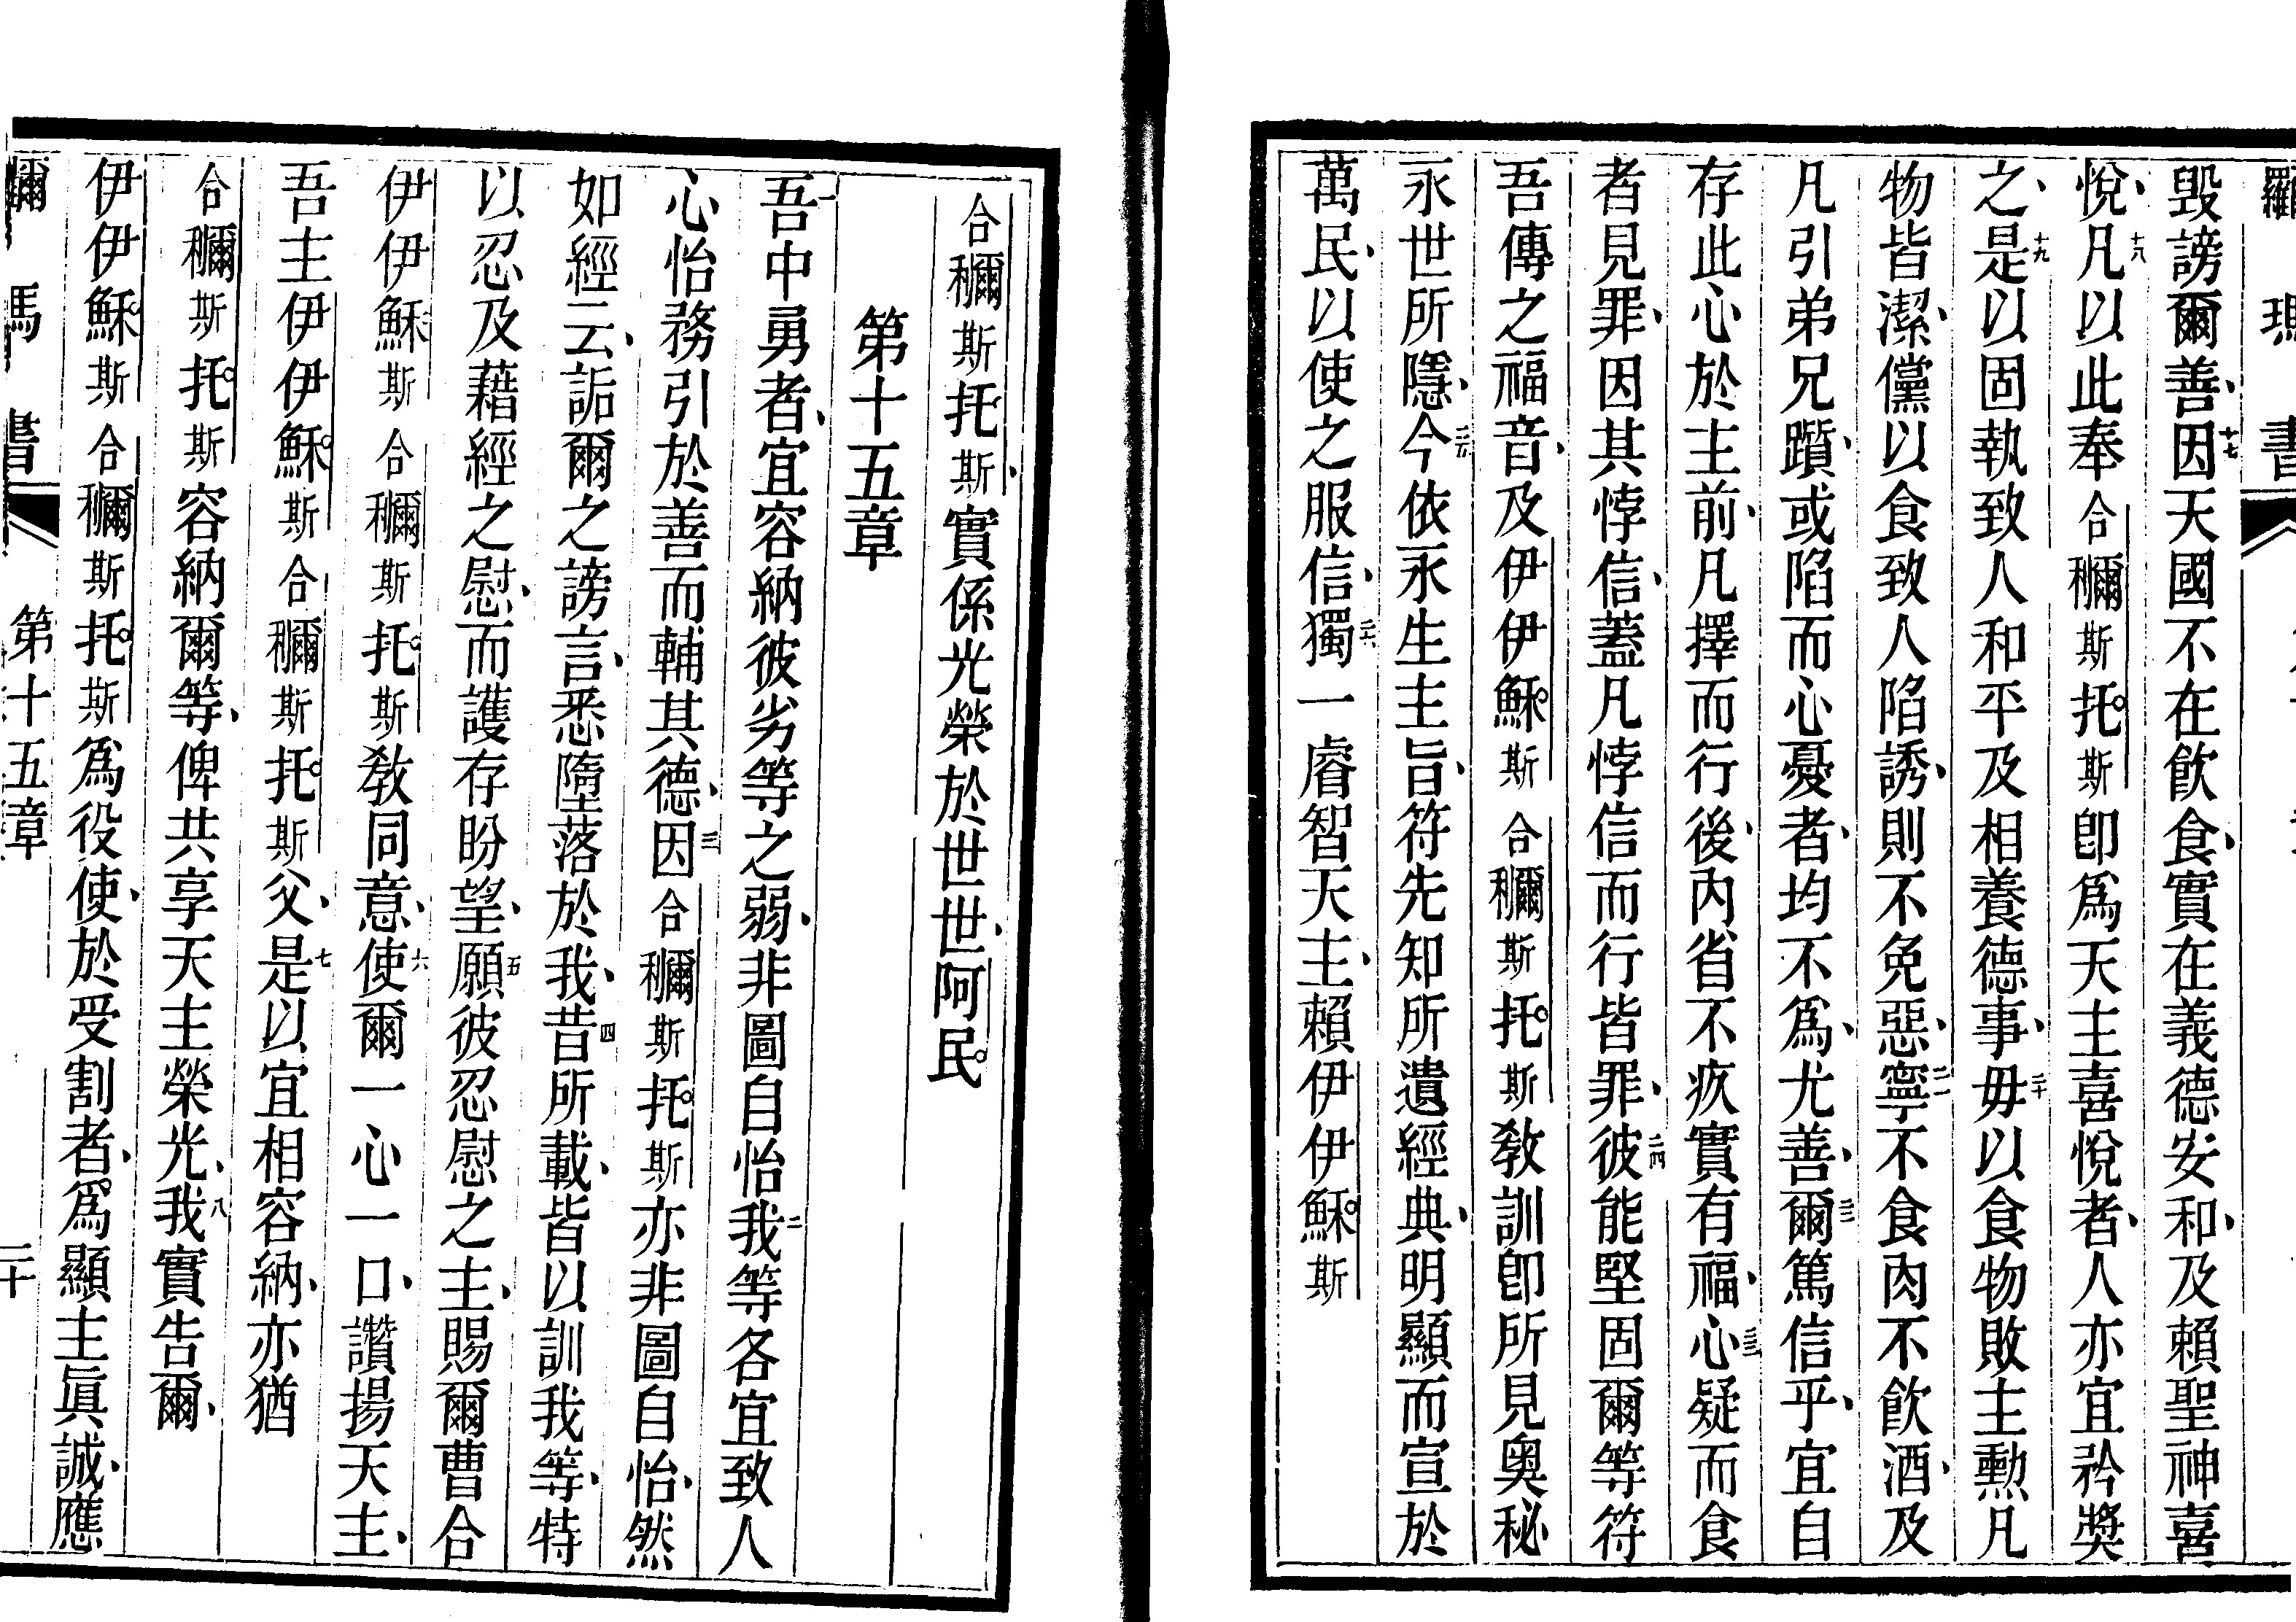 羅 瑪 書
毀謗爾善、十七因天國不在飲食、實在義德安和、及賴聖神喜
悅、十八凡以此奉合𥣡斯托斯卽爲天主喜悅者、人亦宜矜奬
之、十九是以固執致人和平及相養德事、二十毋以食物敗主勲凡
物皆潔、儻以食致人陷誘、則不免惡、二一寧不食肉不飲酒、及
凡引弟兄躓、或陷而心憂者、均不爲、尤善、二二爾篤信乎、宜自
存此心於主前、凡擇而行後、內省不疚實有福、二三心疑而食
者見罪、因其悖信、蓋凡悖信而行皆罪、二四彼能堅固爾等符
吾傳之福音、及伊伊穌斯合𥣡斯托斯敎訓卽所見奥秘
永世所隱、二五今依永生主旨、符先知所遺經典、明顯而宣於
萬民、以使之服信、二六獨一睿智天主、賴伊伊穌斯
合𥣡斯托斯、實係光榮於世世、阿民
第十五章
一吾中勇者、宜容納彼劣等之弱、非圖自怡二我等各宜致人
心怡務引於善而輔其德、三因合𥣡斯托斯亦非圖自怡、然
如經云、詬爾之謗言、悉墮落於我、四昔所載、皆以訓我等、特
以忍及藉經之慰、而護存盼望、五願彼忍慰之主、賜爾曹合
伊伊穌斯合𥣡斯托斯敎同意、六使爾一心一口、讚揚天主、
吾主伊伊穌斯合𥣡斯托斯父、七是以宜相容納、亦猶
合𥣡斯托斯容納爾等、俾共享天主榮光、八我實告爾、
伊伊穌斯合𥣡斯托斯爲役使、於受割者、爲顯主眞誠、應
瑪 書 第十五章 二十